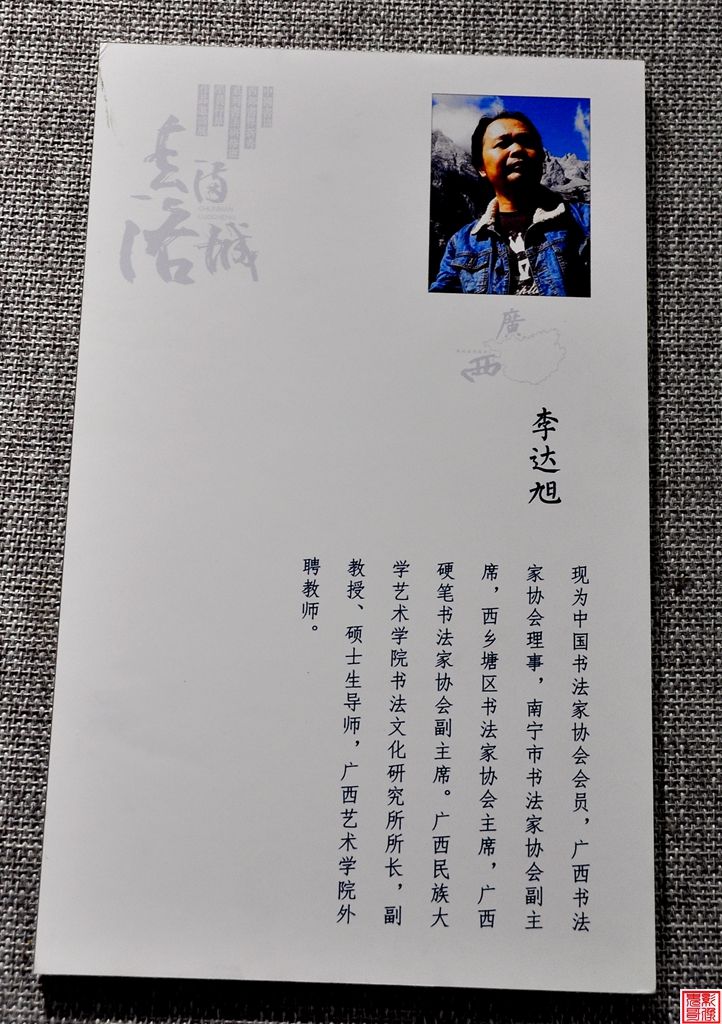 廣西
李达旭
现为中国书法家协会会员，广西书法
家协会理事，南宁市书法家协会副主
席，西乡塘区书法家协会主席，广西
硬笔书法家协会副主席。广西民族大
学艺术学院书法文化研究所所长，副
教授、硕士生导师，广西艺术学院外
聘教师。